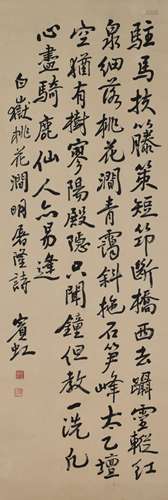 駐馬扶籐策短筇斷橋西去躡雲蹤紅
泉細落桃花澗青靄斜拖石笋峰太乙壇
空猶有樹寥陽殿隱只聞鐘但教一洗凡
心盡騎鹿仙人亦易逢
白嶽桃花澗明屠隆詩
賓虹